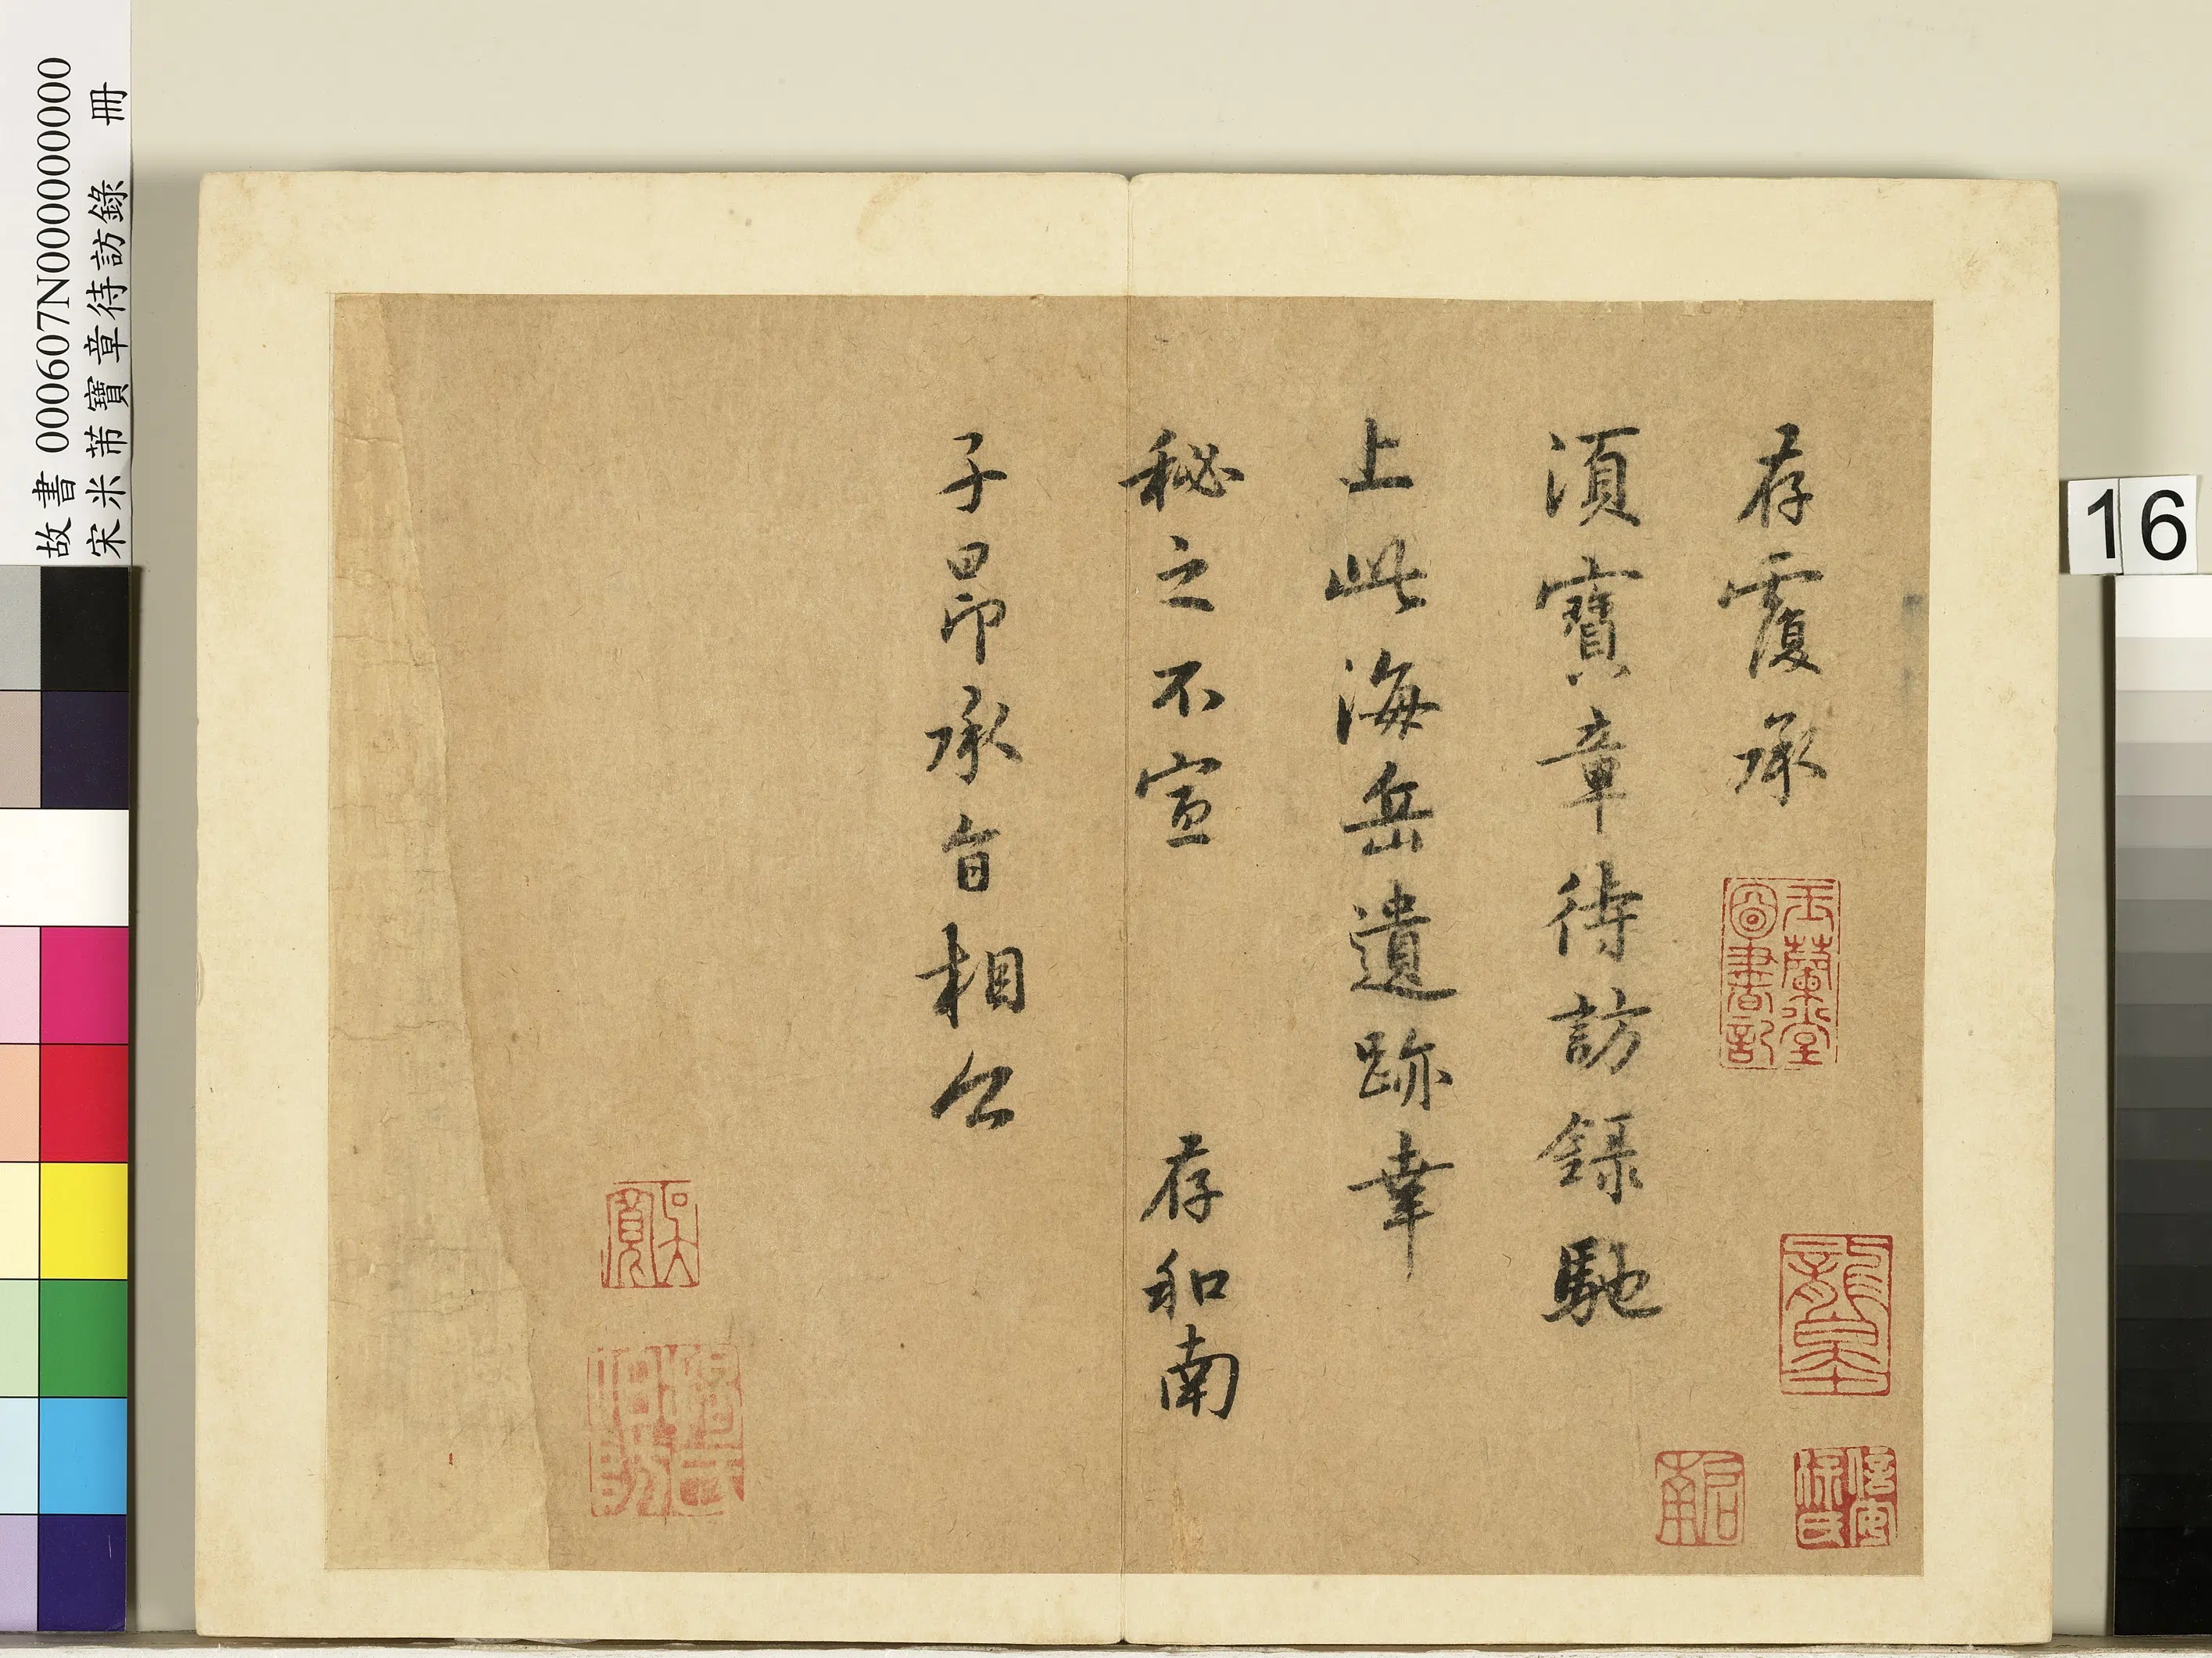 存覆承
須寶章待訪錄馳
上此海岳遺跡幸
秘之不宣 存和南
子昂承旨相公
玉蘭堂
圖書記
吳
寬
故書 000607N000000000
宋米芾寶章待訪錄 冊
16